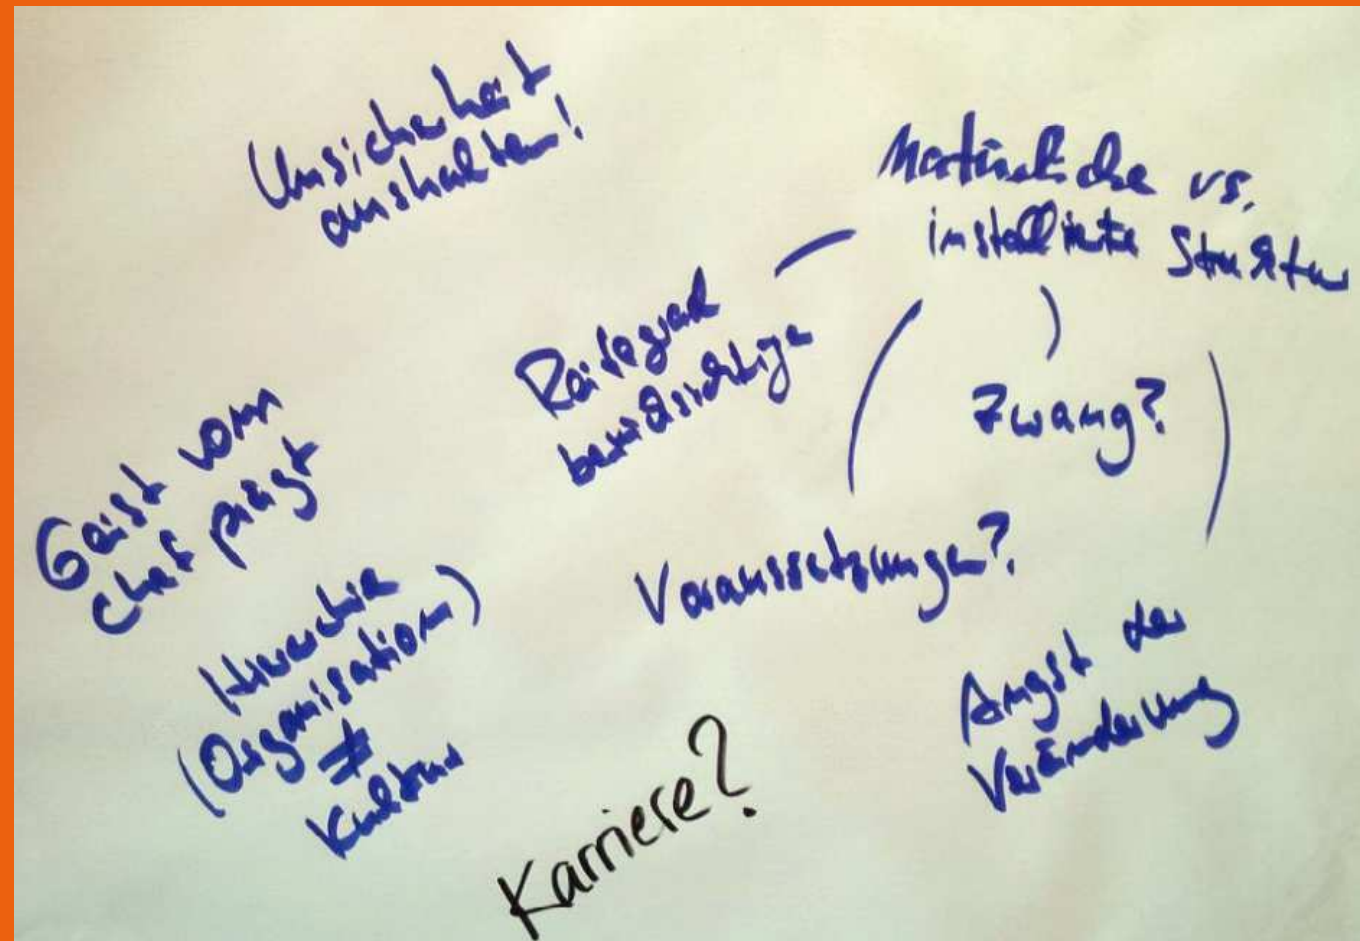 Unsicherheit
aushalten!
Natürliche vs.
installierte Struktur
Reifegrad
berücksichtigen
Zwang?
Geist vom
Chef prägt
Voraussetzungen?
Hierarchie
(Organisation)
≠
Kultur
Angst der
Veränderung
Karriere?